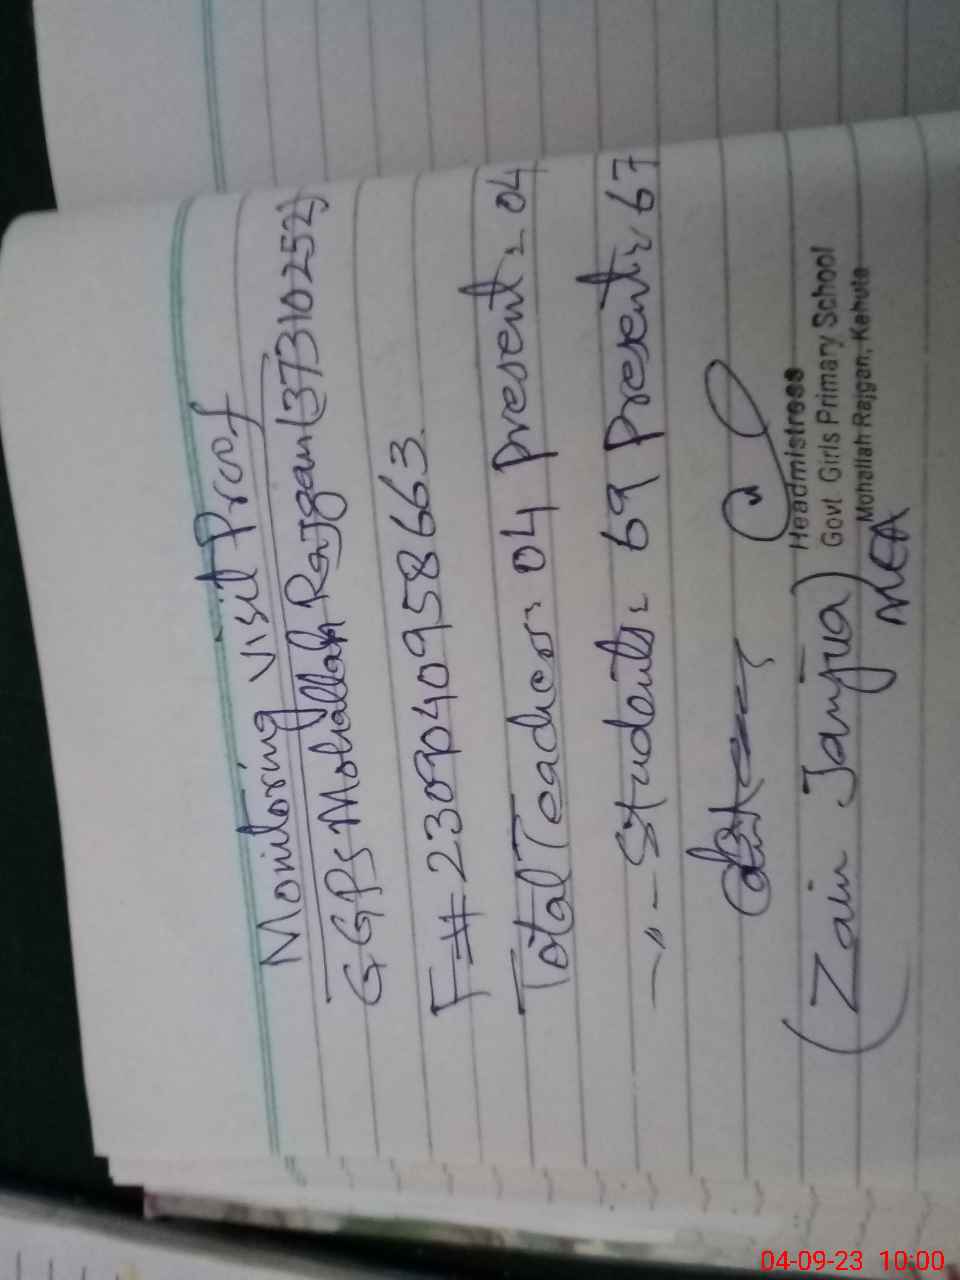 Monitoring visit Proof
GGPS Mohallah Rajgan (37310252)
F# 230904095 8663.
Total Teachers = 04 Present = 04
— 〃 — Students = 69 Present = 67
Headmistress
Govt Girls Primary School
Mohallah Rajgan, Kahuta
(Zain Janjua)
MEA
04-09-23 10:00